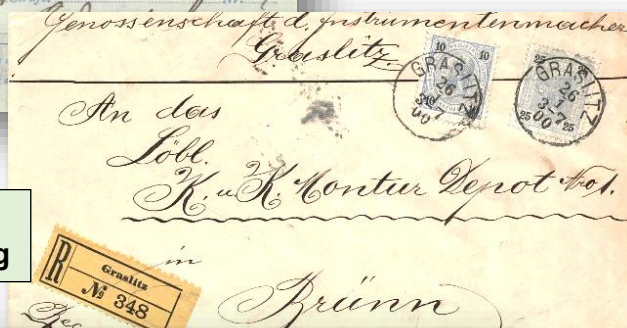 Genossenschaft d. Instrumentenmacher
Graslitz
10 10
25
GRASLITZ
26
3-7
00
GRASLITZ
26
1
3-7
00
25 25
An das
Löbl.
K. u. K. Montur Depot No 1.
in
Brünn
R
Graslitz
No 348
Rec
g